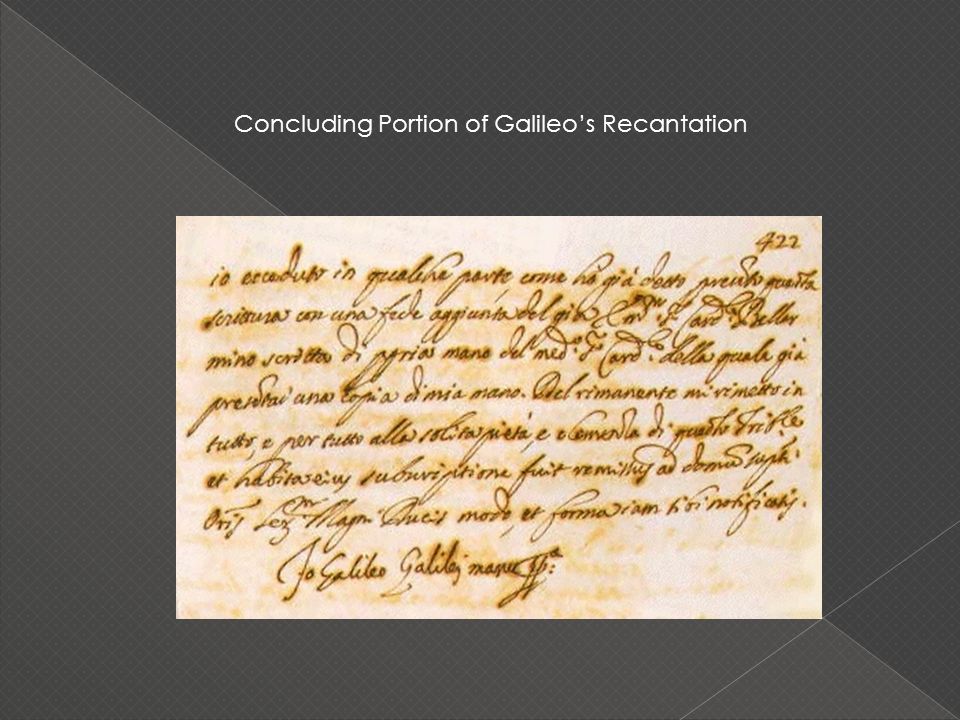 Concluding Portion of Galileo's Recantation
422
io ecceduto in qualche parte, come hò già detto presento questa
scrittura con una fede aggiunta del già Em.mo S.r Card.l Bellar
mino scritta di ppria mano del med.o S.r Card.le della quale già
presentai una copia di mia mano. Del rimanente mi rimetto in
tutto, e per tutto alla solita pietà, e clemenza di questo Trib.le
et habita eius subscriptione fuit remissus ad domum supti.
Oris Ser.mi Magni Ducis modo, et forma iam tibi notificatis.
Io Galileo Galilei manu pp.a